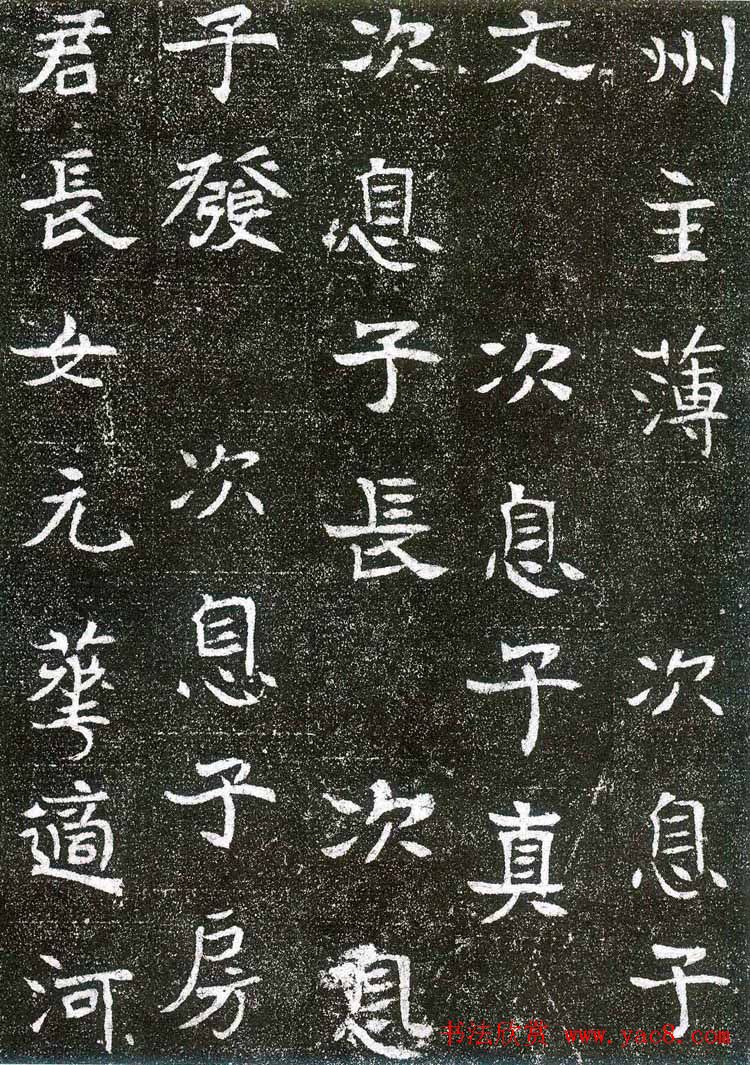 州主薄 次息子
文 次息子真
次息子長 次息
子發 次息子房
君長女元華適河
书法欣赏 www.yac8.com